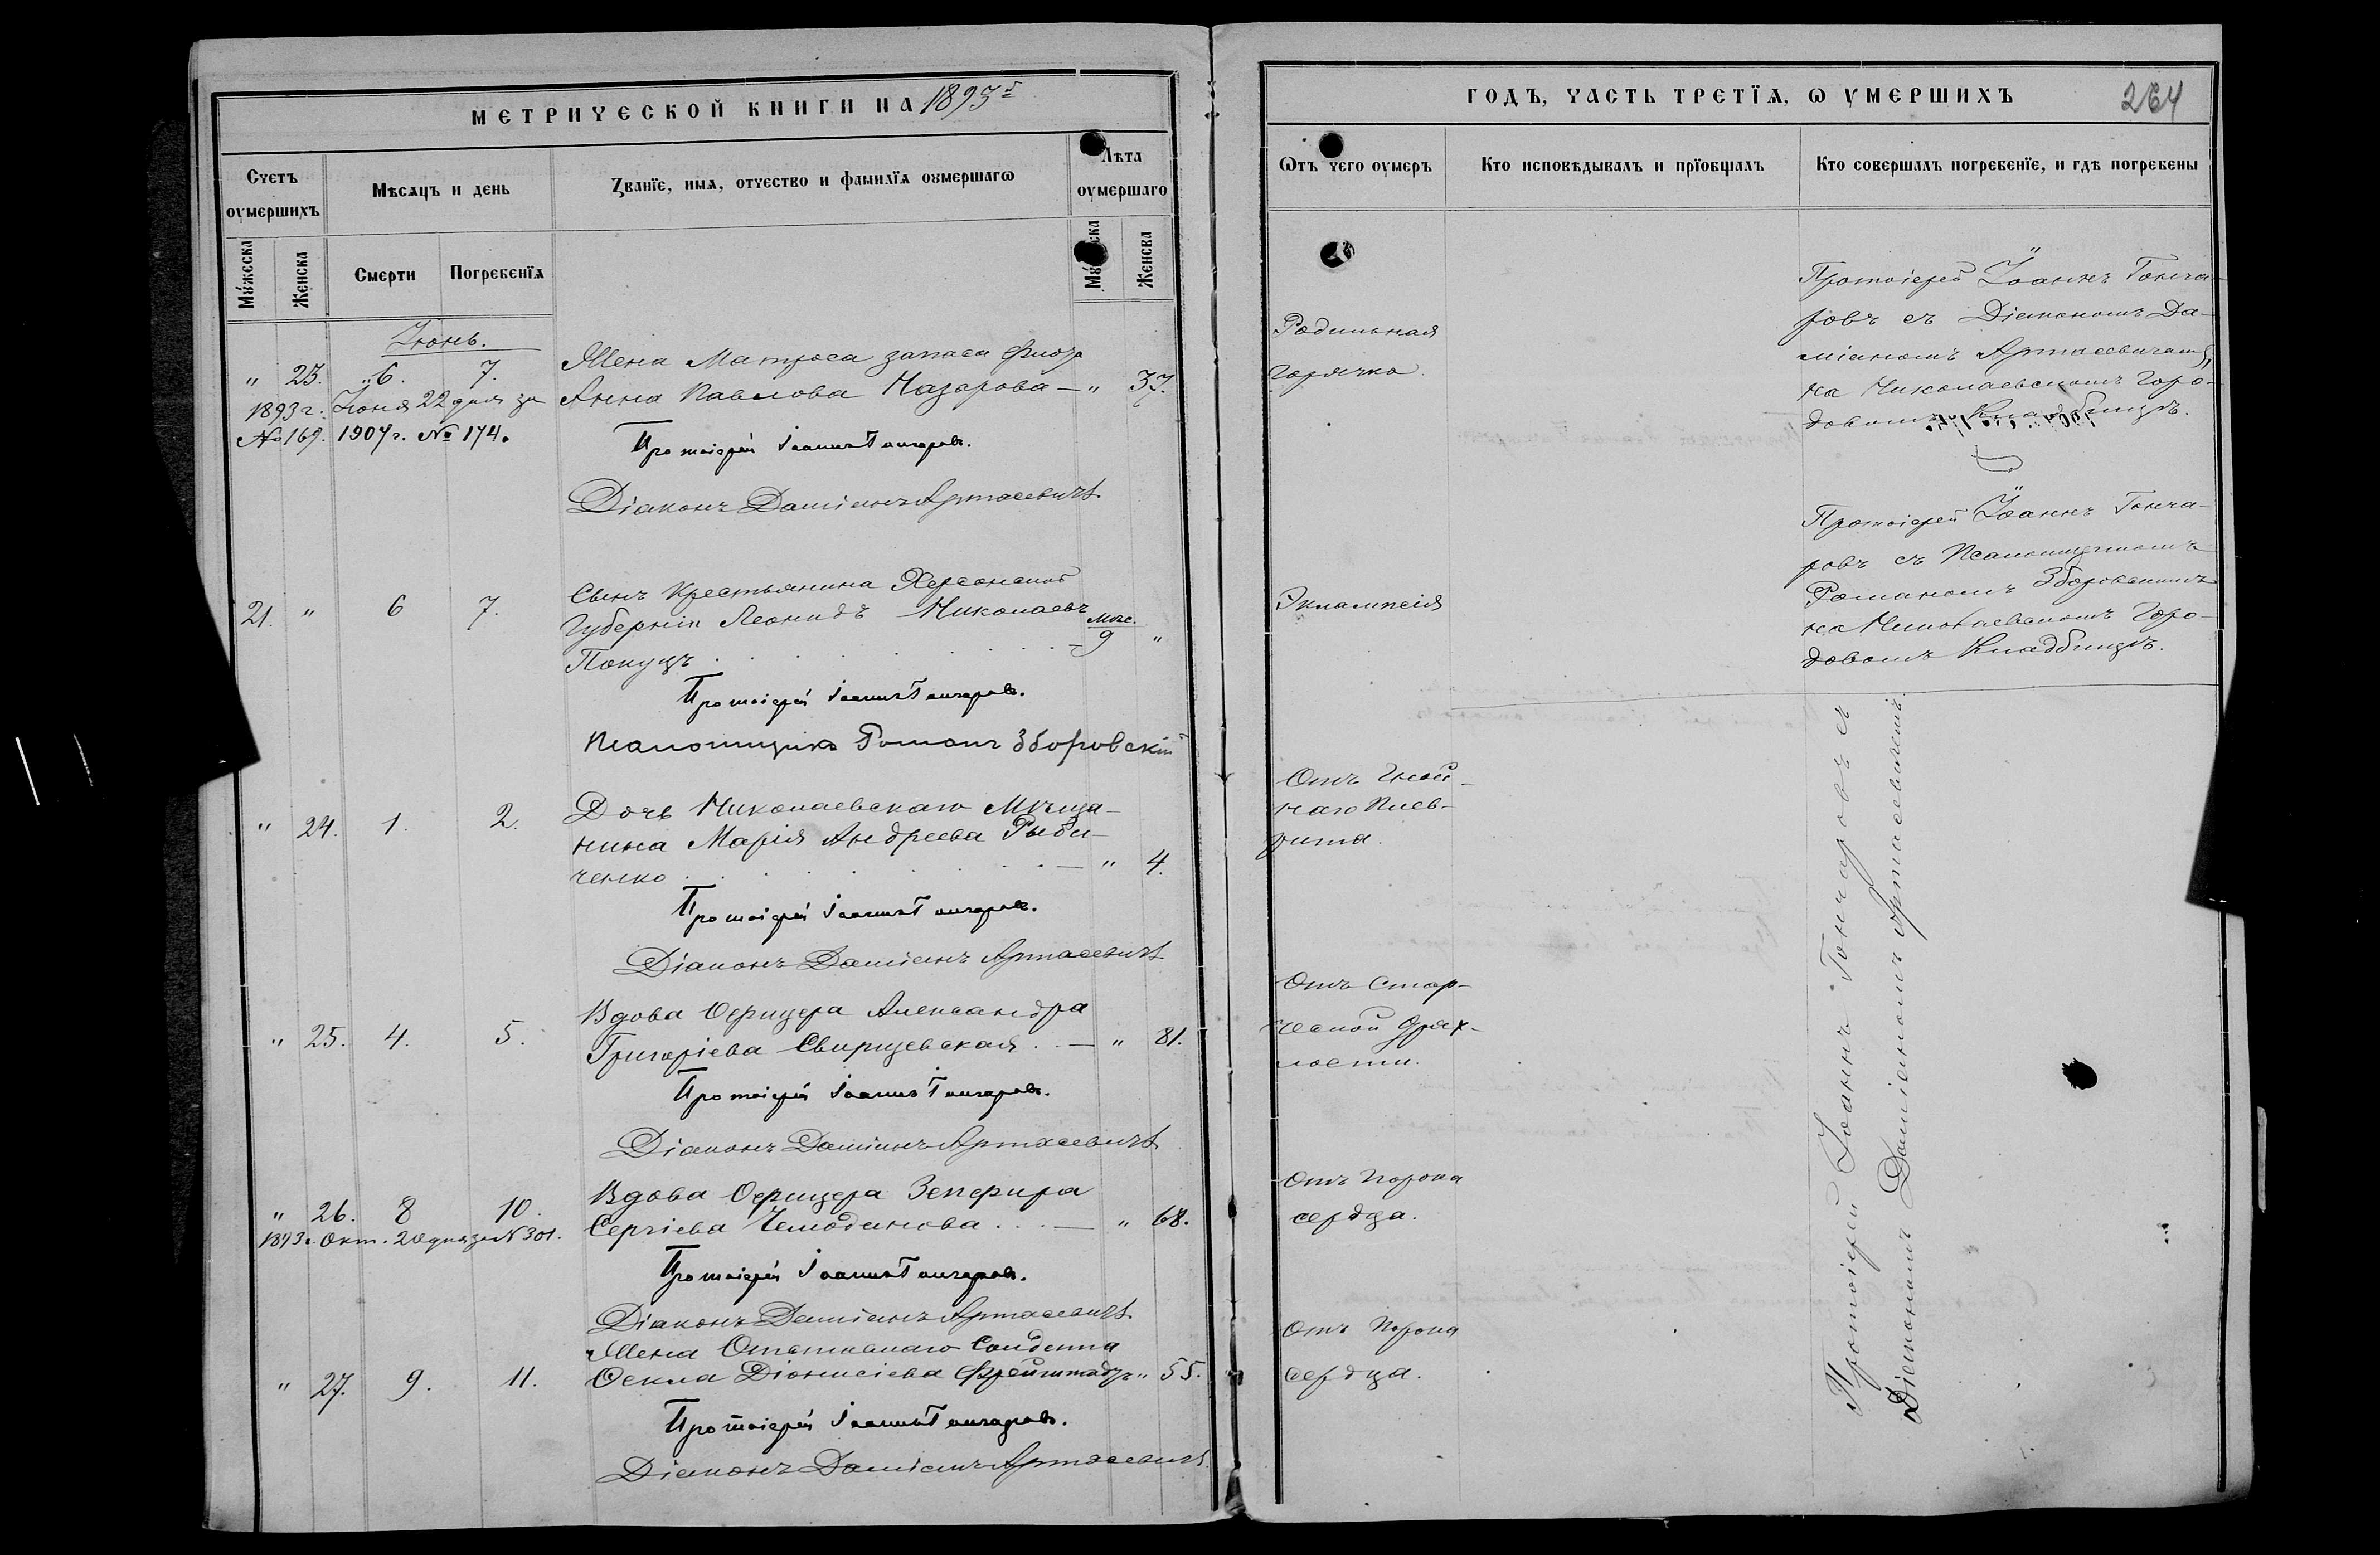 МЕТРИЧЕСКОЙ КНИГИ НА 1893 г
Счетъ оумершихъ
Мѣсяцъ и день
Званїе, имя, отчество и фамилїя оумершагѡ
Лѣта оумершаго
Мꙋжеска
Женска
Смерти
Погребенїя
Женска
Іюнь.
" 23. "6. 7.
Жена Матроса запаса флота
Анна Павлова Назарова — " 37.
1893 г. Іюня 22 дня за
№ 169. 1907 г. № 174.
Протоіерей Іоаннъ Гончаровъ.
Діаконъ Даміанъ Артасевичъ
21. " 6 7.
Сынъ крестьянина Херсонской
Губерніи Леонидъ Николаевъ Мѣс.
Покуцъ . . . . . . . 9 "
Протоіерей Іоаннъ Гончаровъ.
Псаломщикъ Романъ Зборовскій
" 24. 1. 2.
Дочь Николаевскаго Мѣща-
нина Марія Андреева Рыби-
ченко . . . . . . . — " 4.
Протоіерей Іоаннъ Гончаровъ.
Діаконъ Даміанъ Артасевичъ
" 25. 4. 5.
Вдова Офицера Александра
Григоріева Свирщевская . . — " 81.
Протоіерей Іоаннъ Гончаровъ.
Діаконъ Даміанъ Артасевичъ
" 26. 8 10.
Вдова Офицера Земфира
Сергіева Чемоданова . . . — " 68.
1893 г. Окт. 20 дня за № 301.
Протоіерей Іоаннъ Гончаровъ.
Діаконъ Даміанъ Артасевичъ
" 27. 9. 11.
Жена Отставнаго Солдата
Ѳекла Діонисіева " 55.
Протоіерей Іоаннъ Гончаровъ.
Діаконъ Даміанъ Артасевичъ
ГОДЪ, ЧАСТЬ ТРЕТЇЯ, Ѡ УМЕРШИХЪ
264
Ѿтъ чего оумеръ
Кто исповѣдывалъ и прїобщалъ
Кто совершалъ погребенїе, и гдѣ погребены
Родильная
горячка.
Протоіерей Іоаннъ Гонча-
ровъ съ Діакономъ Да-
міаномъ Артасевичемъ,
на Николаевскомъ Горо-
довомъ Кладбищѣ.
Эклампсія
Протоіерей Іоаннъ Гонча-
ровъ съ Псаломщикомъ
Романомъ Зборовскимъ
на Николаевскомъ Горо-
довомъ Кладбищѣ.
Отъ Гной-
наго Плев-
рита.
Отъ Стар-
ческой дрях-
лости.
Отъ порока
сердца.
Отъ порока
сердца.
Протоіерей Іоаннъ Гончаровъ съ
Діакономъ Даміаномъ Артасевичемъ.